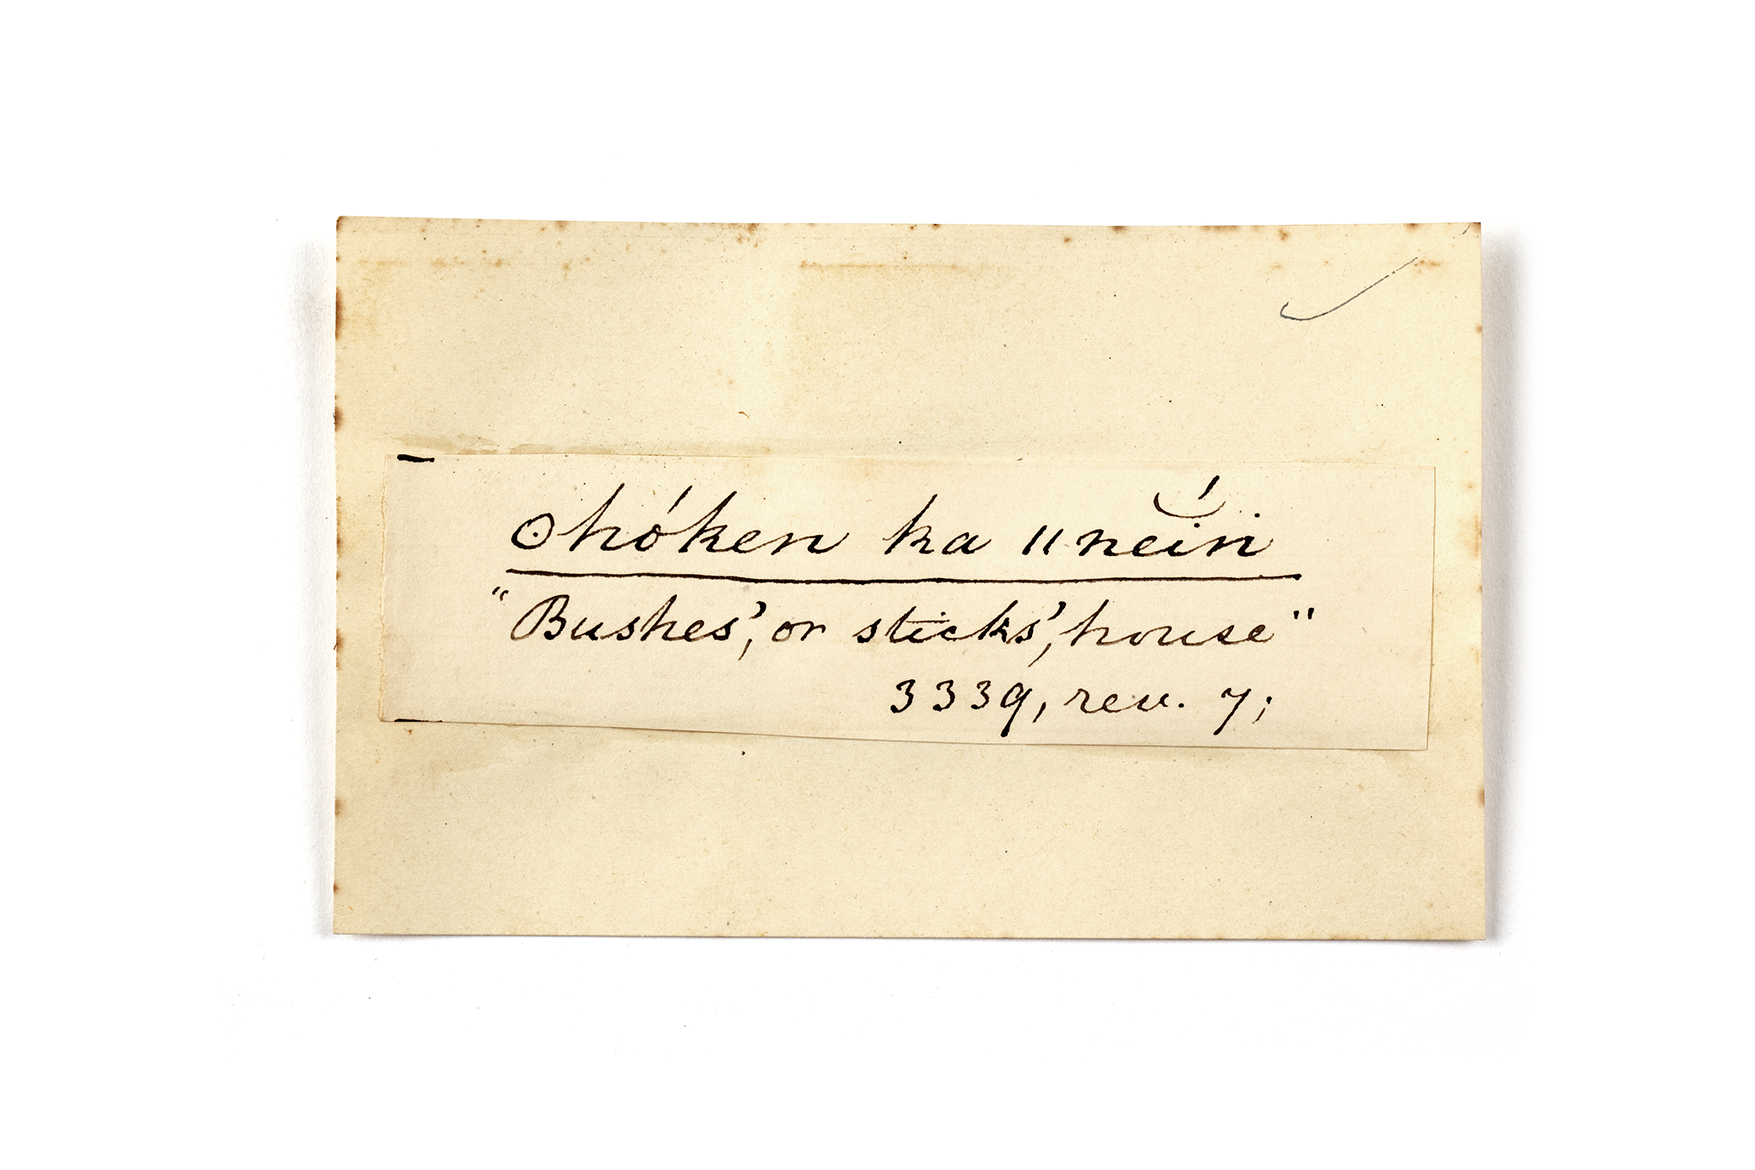 ʘhóken ka ǁnĕ́in
"Bushes', or sticks', house"
3339, rev. 7;